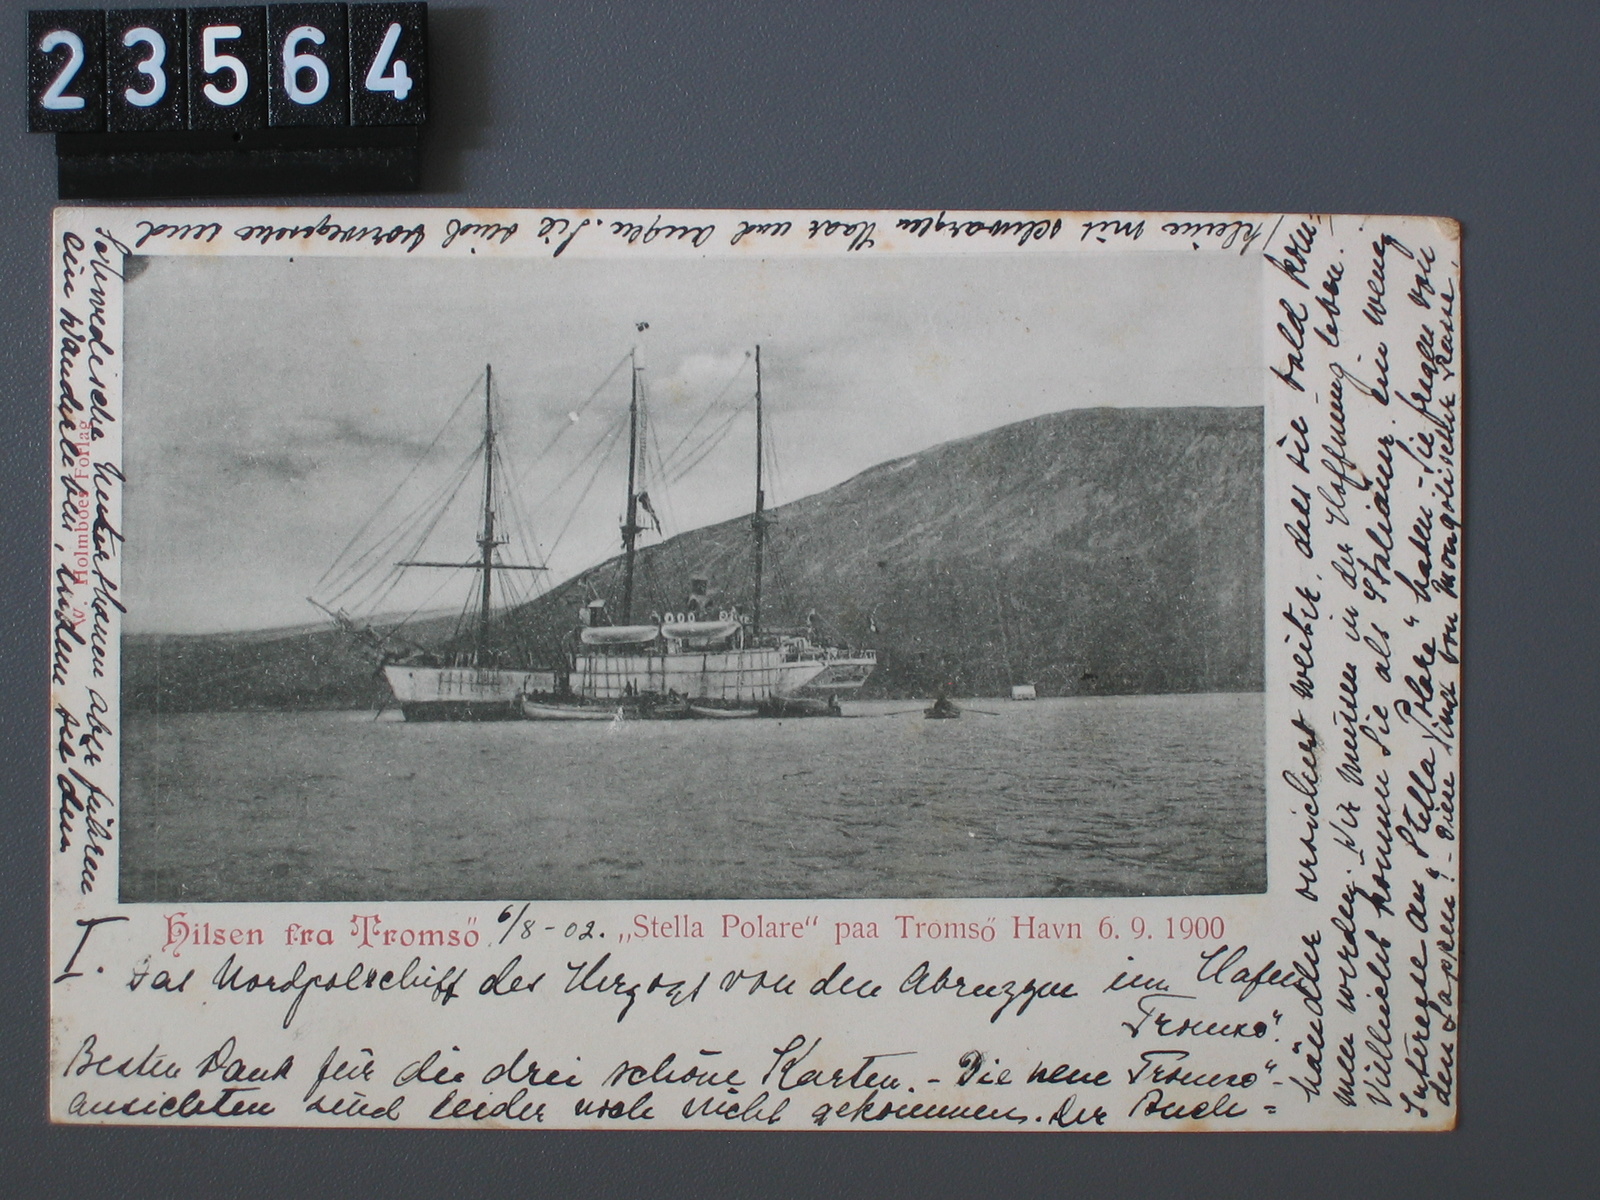 23564
Hilsen fra Tromsö 6/8-02. „Stella Polare“ paa Tromsö Havn 6. 9. 1900
I.
Das Nordpolschiff des Herzogs von den Abruzzen im Hafen
Tromsö.
Besten Dank für die drei schöne Karten. - Die neue Tromsö-
ansichten sind leider noch nicht gekommen. Der Buch=
händler versichert weiter, dass sie bald kom=
men werden. Wir müssen in der Hoffnung leben.
Villeicht können Sie als Italiäner ein wenig
Interesse an „Stella Polare“ haben - Sie fragen von
den Lappen? - Diese sind von mongolischer Rasse,
kleine mit schwarzen Haar und Augen. Sie sind norwegische und
schwedische Unterthanen aber führen
ein Wanderleben, indem sie den
W. Holmboes Forlag